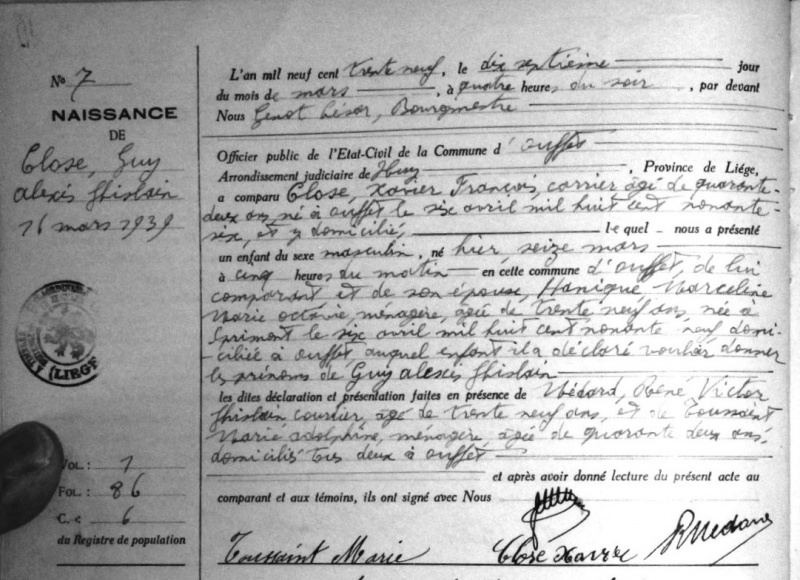 No 7
NAISSANCE
DE
Close, Guy
alexis Ghislain
16 mars 1939
(LIEGE
VOL. : 1
FOL. : 86
C. : 6
du Registre de population
L'an mil neuf cent trente neuf, le dix septième jour
du mois de mars, à quatre heures du soir, par devant
Nous Genot Césor, Bourgmestre
Officier public de l'Etat-Civil de la Commune d'ouffet
Arrondissement judiciaire de Huy, Province de Liége,
a comparu Close, Xavier François, carrier âgé de quarante-
deux ans, né à ouffet le six avril mil huit cent nonante-
six, et y domicilié, lequel nous a présenté
un enfant du sexe masculin, né hier, seize mars
à cinq heures du matin en cette commune d'ouffet, de lui
comparant et de son épouse, Hanique Marceline
Marie octavie, ménagère, âgée de trente neuf ans, née à
Sprimont le six avril mil huit cent nonante neuf domi-
ciliée à ouffet auquel enfant il a déclaré vouloir donner
les prénoms de Guy alexis Ghislain
les dites déclaration et présentation faites en présence de Médard, René Victor
Ghislain âgé de trente neuf ans, et de Toussaint
Marie adolphine, ménagère, âgée de quarante deux ans,
domiciliés tous deux à ouffet
et après avoir donné lecture du présent acte au
comparant et aux témoins, ils ont signé avec Nous
Toussaint Marie Close Xavier RMedard